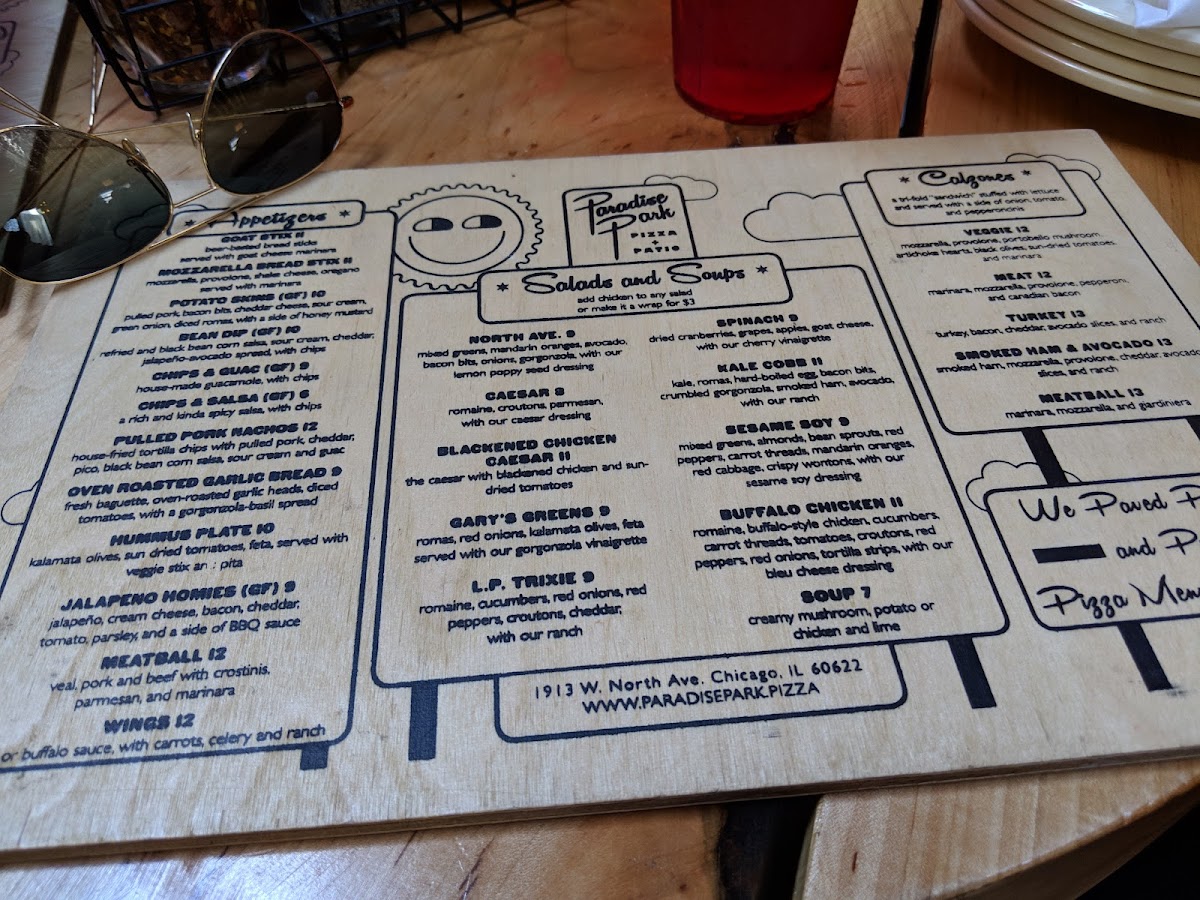 * Appetizers *
GOAT STIX 11
beer-basted bread sticks
served with goat cheese marinara
MOZZARELLA BREAD STIX 11
mozzarella, provolone, shake cheese, oregano
served with marinara
POTATO SKINS (GF) 10
pulled pork, bacon bits, cheddar cheese, sour cream,
green onion, diced romas, with a side of honey mustard
BEAN DIP (GF) 10
refried and black bean corn salsa, sour cream, cheddar,
jalapeño-avocado spread, with chips
CHIPS & GUAC (GF) 9
house-made guacamole, with chips
CHIPS & SALSA (GF) 6
a rich and kinda spicy salsa, with chips
PULLED PORK NACHOS 12
house-fried tortilla chips with pulled pork, cheddar,
pico, black bean corn salsa, sour cream and guac
OVEN ROASTED GARLIC BREAD 9
fresh baguette, oven-roasted garlic heads, diced
tomatoes, with a gorgonzola-basil spread
HUMMUS PLATE 10
kalamata olives, sun dried tomatoes, feta, served with
veggie stix an : pita
JALAPENO HOMIES (GF) 9
jalapeño, cream cheese, bacon, cheddar,
tomato, parsley, and a side of BBQ sauce
MEATBALL 12
veal, pork and beef with crostinis,
parmesan, and marinara
WINGS 12
or buffalo sauce, with carrots, celery and ranch
Paradise
Park
PIZZA
+
PATIO
* Salads and Soups *
add chicken to any salad
or make it a wrap for $3
NORTH AVE. 9
mixed greens, mandarin oranges, avocado,
bacon bits, onions, gorgonzola, with our
lemon poppy seed dressing
CAESAR 8
romaine, croutons, parmesan,
with our caesar dressing
BLACKENED CHICKEN
CAESAR 11
the caesar with blackened chicken and sun-
dried tomatoes
GARY'S GREENS 9
romas, red onions, kalamata olives, feta
served with our gorgonzola vinaigrette
L.P. TRIXIE 9
romaine, cucumbers, red onions, red
peppers, croutons, cheddar,
with our ranch
SPINACH 9
dried cranberries, grapes, apples, goat cheese,
with our cherry vinaigrette
KALE COBB 11
kale, romas, hard-boiled egg, bacon bits,
crumbled gorgonzola, smoked ham, avocado,
with our ranch
SESAME SOY 9
mixed greens, almonds, bean sprouts, red
peppers, carrot threads, mandarin oranges,
red cabbage, crispy wontons, with our
sesame soy dressing
BUFFALO CHICKEN 11
romaine, buffalo-style chicken, cucumbers,
carrot threads, tomatoes, croutons, red
peppers, red onions, tortilla strips, with our
bleu cheese dressing
SOUP 7
creamy mushroom, potato or
chicken and lime
1913 W. North Ave. Chicago, IL 60622
WWW.PARADISEPARK.PIZZA
* Calzones *
a tri-fold "sandwich" stuffed with lettuce
and served with a side of onion, tomato,
and pepperoncinis
VEGGIE 12
mozzarella, provolone, portobello mushroom,
artichoke hearts, black olives, sun-dried tomatoes,
and marinara
MEAT 12
marinara, mozzarella, provolone, pepperoni,
and canadian bacon
TURKEY 13
turkey, bacon, cheddar, avocado slices, and ranch
SMOKED HAM & AVOCADO 13
smoked ham, mozzarella, provolone, cheddar, avocado
slices, and ranch
MEATBALL 13
marinara, mozzarella, and gardiniera
We Paved P
and P
Pizza Men